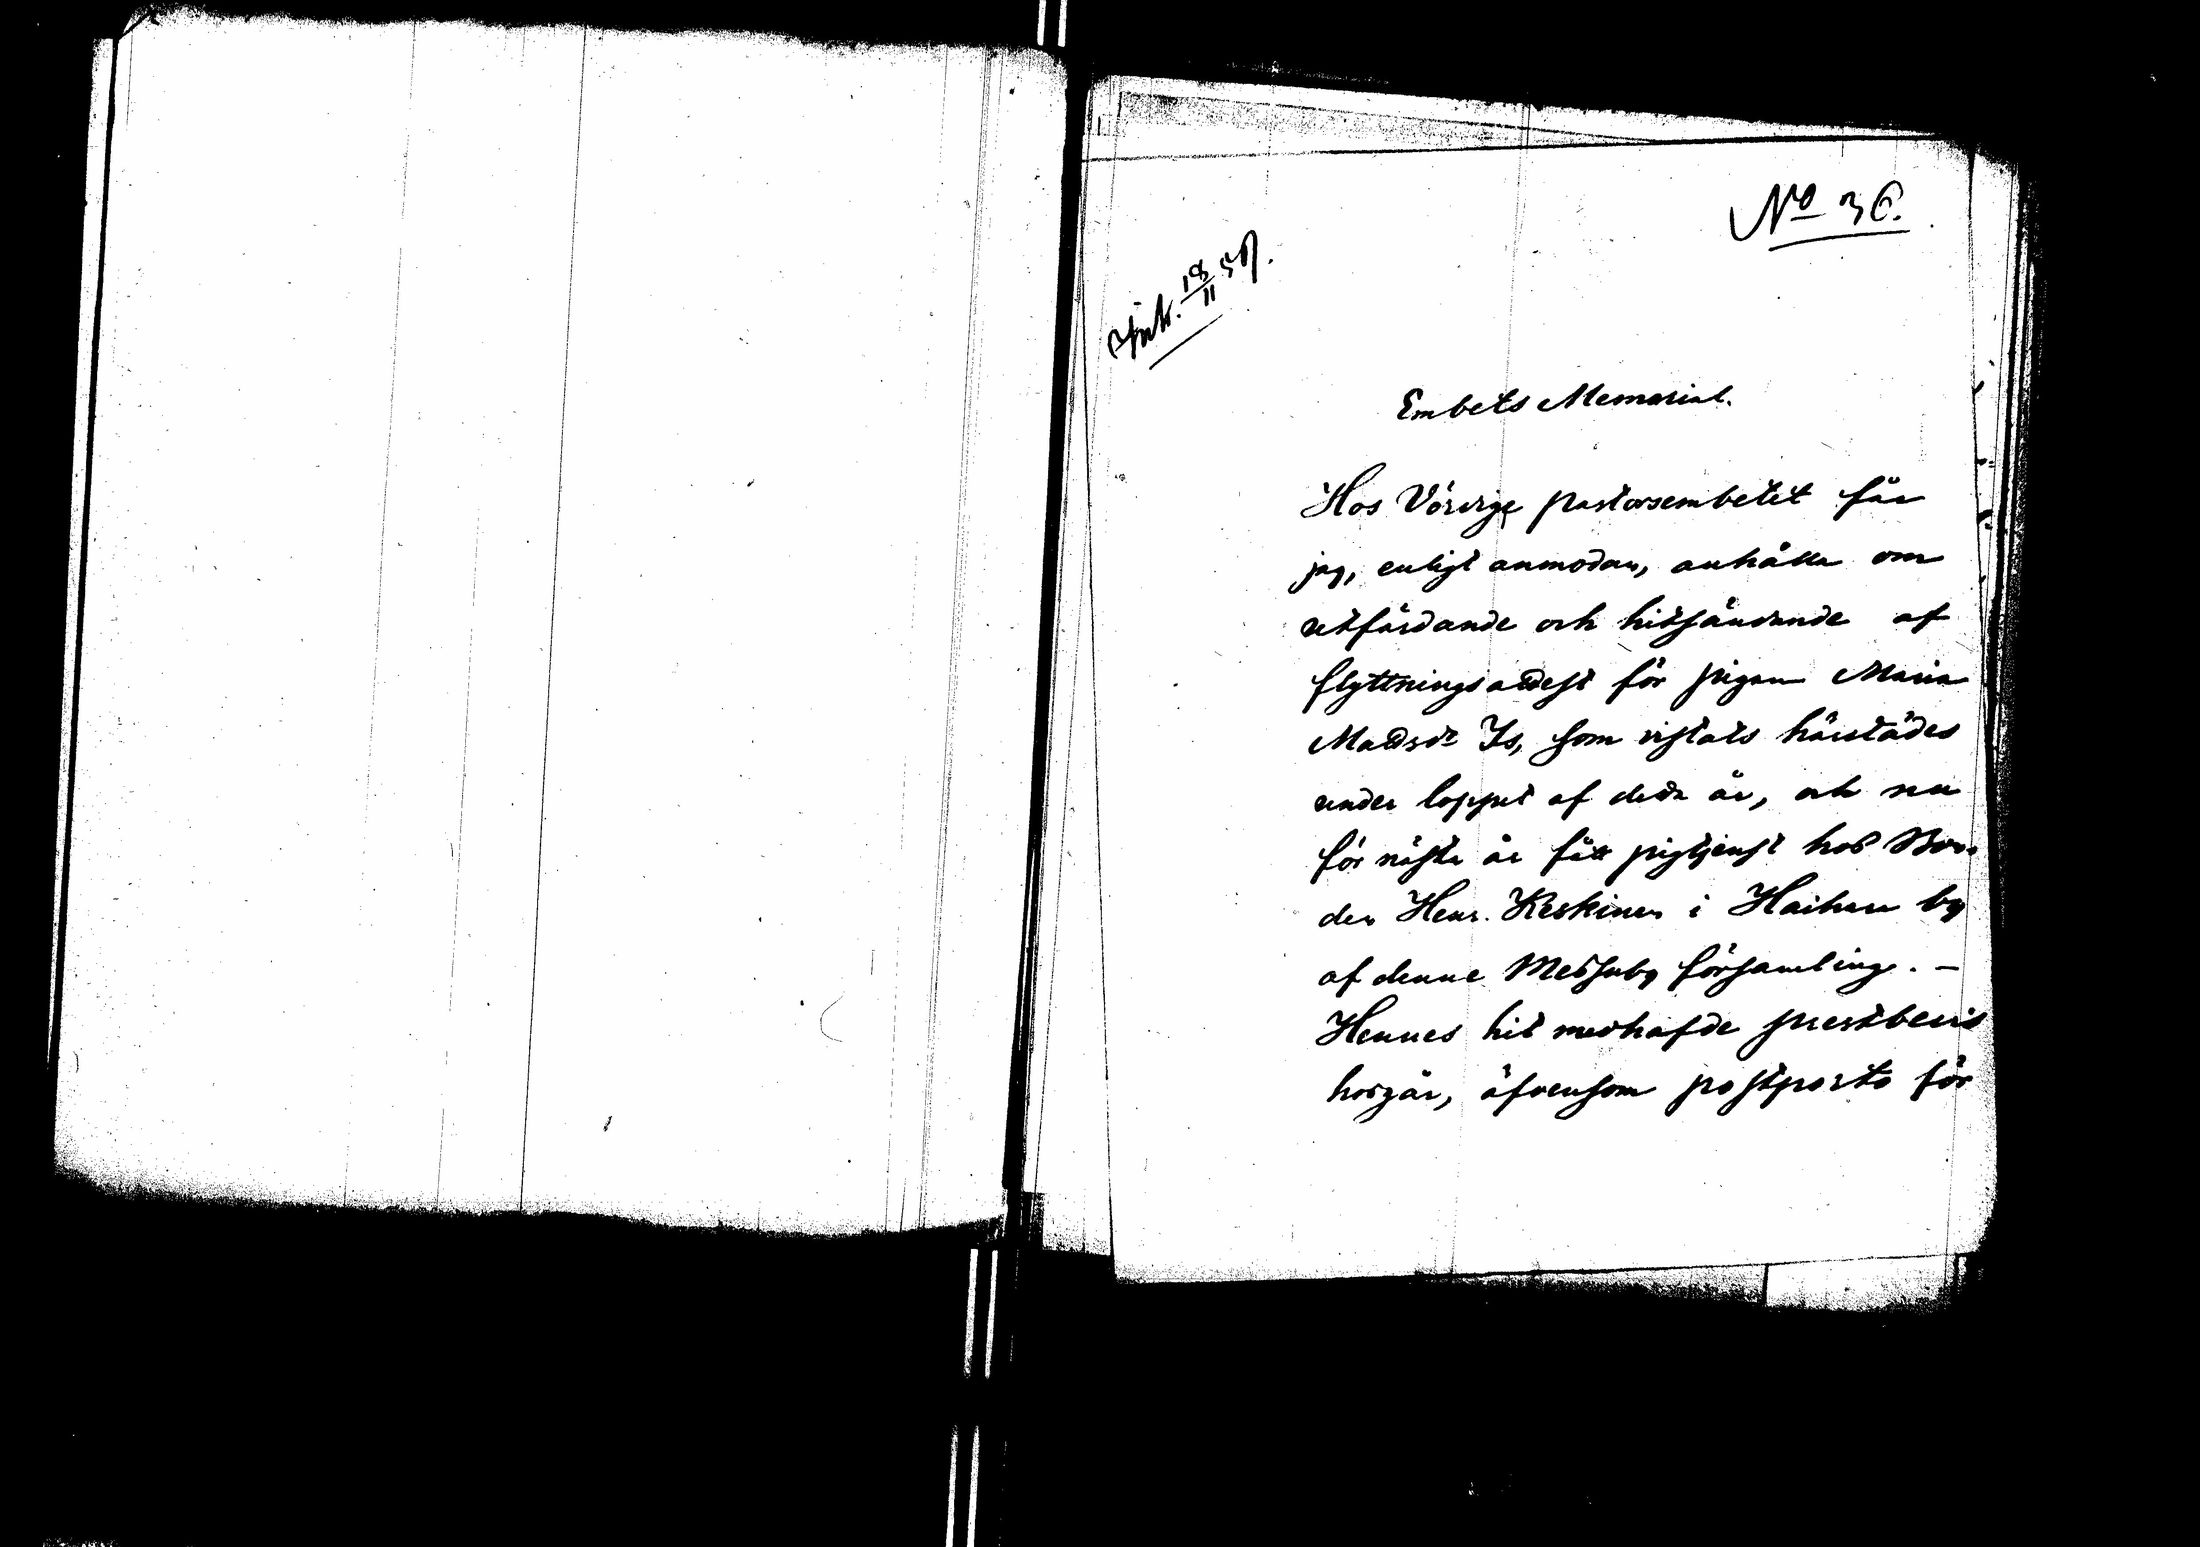 No 36.
Ink. 18/11 57.
Embets Memorial.
Hos Vördige pastorsembetet får
jag, enligt anmodan, anhålla om
utfärdande och hitsändande af
flyttningsattest för pigan Maria
Mattsdr Is, som vistats härstädes
under loppet af detta år, och nu
för nästa år fått pigtjenst hos Bon-
den Henr. Keskinen i Haihara by
af denne Messuby församling. -
Hennes hit medhafde prestbevis
hosgår, äfvensom postporto för